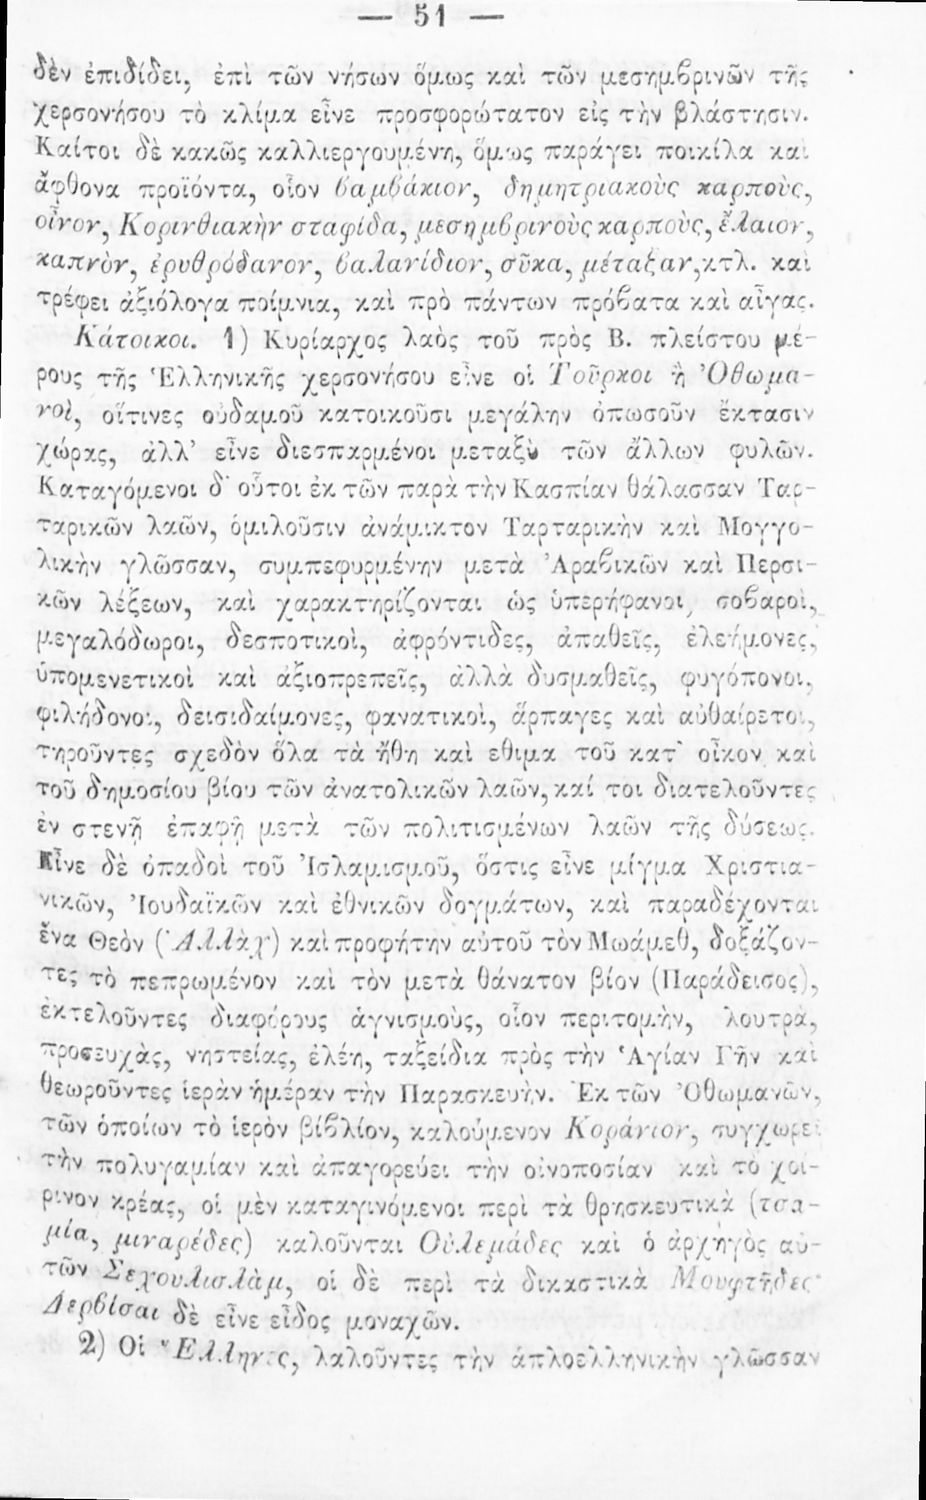 — 51 —
δὲν ἐπιδίδει, ἐπὶ τῶν νήσων ὅμως καὶ τῶν μεσημβρινῶν τῆς
χερσονήσου τὸ κλίμα εἶνε προσφορώτατον εἰς τὴν βλάστησιν.
Καίτοι δὲ κακῶς καλλιεργουμένη, ὅμως παράγει ποικίλα καὶ
ἄφθονα προϊόντα, οἷον βαμβάκιον, δημητριακοὺς καρποὺς,
οἶνον, Κορινθιακὴν σταφίδα, μεσημβρινοὺς καρποὺς, ἔλαιον,
καπνὸν, ἐρυθρόδανον, βαλανίδιον, σῦκα, μέταξαν,κτλ. καὶ
τρέφει ἀξιόλογα ποίμνια, καὶ πρὸ πάντων πρόβατα καὶ αἶγας.
Κάτοικοι. 1) Κυρίαρχος λαὸς τοῦ πρὸς Β. πλείστου μέ-
ρους τῆς Ἑλληνικῆς χερσονήσου εἶνε οἱ Τοῦρκοι ἢ Ὀθωμα-
νοὶ, οἵτινες οὐδαμοῦ κατοικοῦσι μεγάλην ὁπωσοῦν ἔκτασιν
χώρας, ἀλλ' εἶνε διεσπαρμένοι μεταξὺ τῶν ἄλλων φυλῶν.
Καταγόμενοι δ' οὗτοι ἐκ τῶν παρὰ τὴν Κασπίαν θάλασσαν Ταρ-
ταρικῶν λαῶν, ὁμιλοῦσιν ἀνάμικτον Ταρταρικὴν καὶ Μογγο-
λικὴν γλῶσσαν, συμπεφυρμένην μετὰ Ἀραβικῶν καὶ Περσι-
κῶν λέξεων, καὶ χαρακτηρίζονται ὡς ὑπερήφανοι, σοβαροὶ,
μεγαλόδωροι, δεσποτικοὶ, ἀφρόντιδες, ἀπαθεῖς, ἐλεήμονες,
ὑπομενετικοὶ καὶ ἀξιοπρεπεῖς, ἀλλὰ δυσμαθεῖς, φυγόπονοι,
φιλήδονοι, δεισιδαίμονες, φανατικοὶ, ἅρπαγες καὶ αὐθαίρετοι,
τηροῦντες σχεδὸν ὅλα τὰ ἤθη καὶ εθιμα τοῦ κατ' οἶκον καὶ
τοῦ δημοσίου βίου τῶν ἀνατολικῶν λαῶν, καί τοι διατελοῦντες
ἐν στενῇ ἐπαφῇ μετὰ τῶν πολιτισμένων λαῶν τῆς δύσεως.
Εἶνε δὲ ὀπαδοὶ τοῦ Ἰσλαμισμοῦ, ὅστις εἶνε μίγμα Χριστια-
νικῶν, Ἰουδαϊκῶν καὶ ἐθνικῶν δογμάτων, καὶ παραδέχονται
ἕνα Θεὸν (Ἀλλὰχ) καὶ προφήτην αὐτοῦ τὸν Μωάμεθ, δοξάζον-
τες τὸ πεπρωμένον καὶ τὸν μετὰ θάνατον βίον (Παράδεισος),
ἐκτελοῦντες διαφόρους ἁγνισμοὺς, οἷον περιτομὴν, λουτρὰ,
προσευχὰς, νηστείας, ἐλέη, ταξείδια πρὸς τὴν Ἁγίαν Γῆν καὶ
θεωροῦντες ἱερὰν ἡμέραν τὴν Παρασκευὴν. Ἐκ τῶν Ὀθωμανῶν,
τῶν ὁποίων τὸ ἱερὸν βίβλίον, καλούμενον Κοράνιον, συγχωρεῖ
τὴν πολυγαμίαν καὶ ἀπαγορεύει τὴν οἰνοποσίαν καὶ τὸ χοί-
ρινον κρέας, οἱ μὲν καταγινόμενοι περὶ τὰ θρησκευτικὰ (τσα-
μία, μιναρέδες) καλοῦνται Οὐλεμάδες καὶ ὁ ἀρχηγὸς αὐ-
τῶν Σεχουλισλὰμ, οἱ δὲ περὶ τὰ δικαστικὰ Μουφτῆδες·
Δερβίσαι δὲ εἶνε εἶδος μοναχῶν.
2) Οἱ Ἕλληνες, λαλοῦντες τὴν ἁπλοελληνικὴν γλῶσσαν